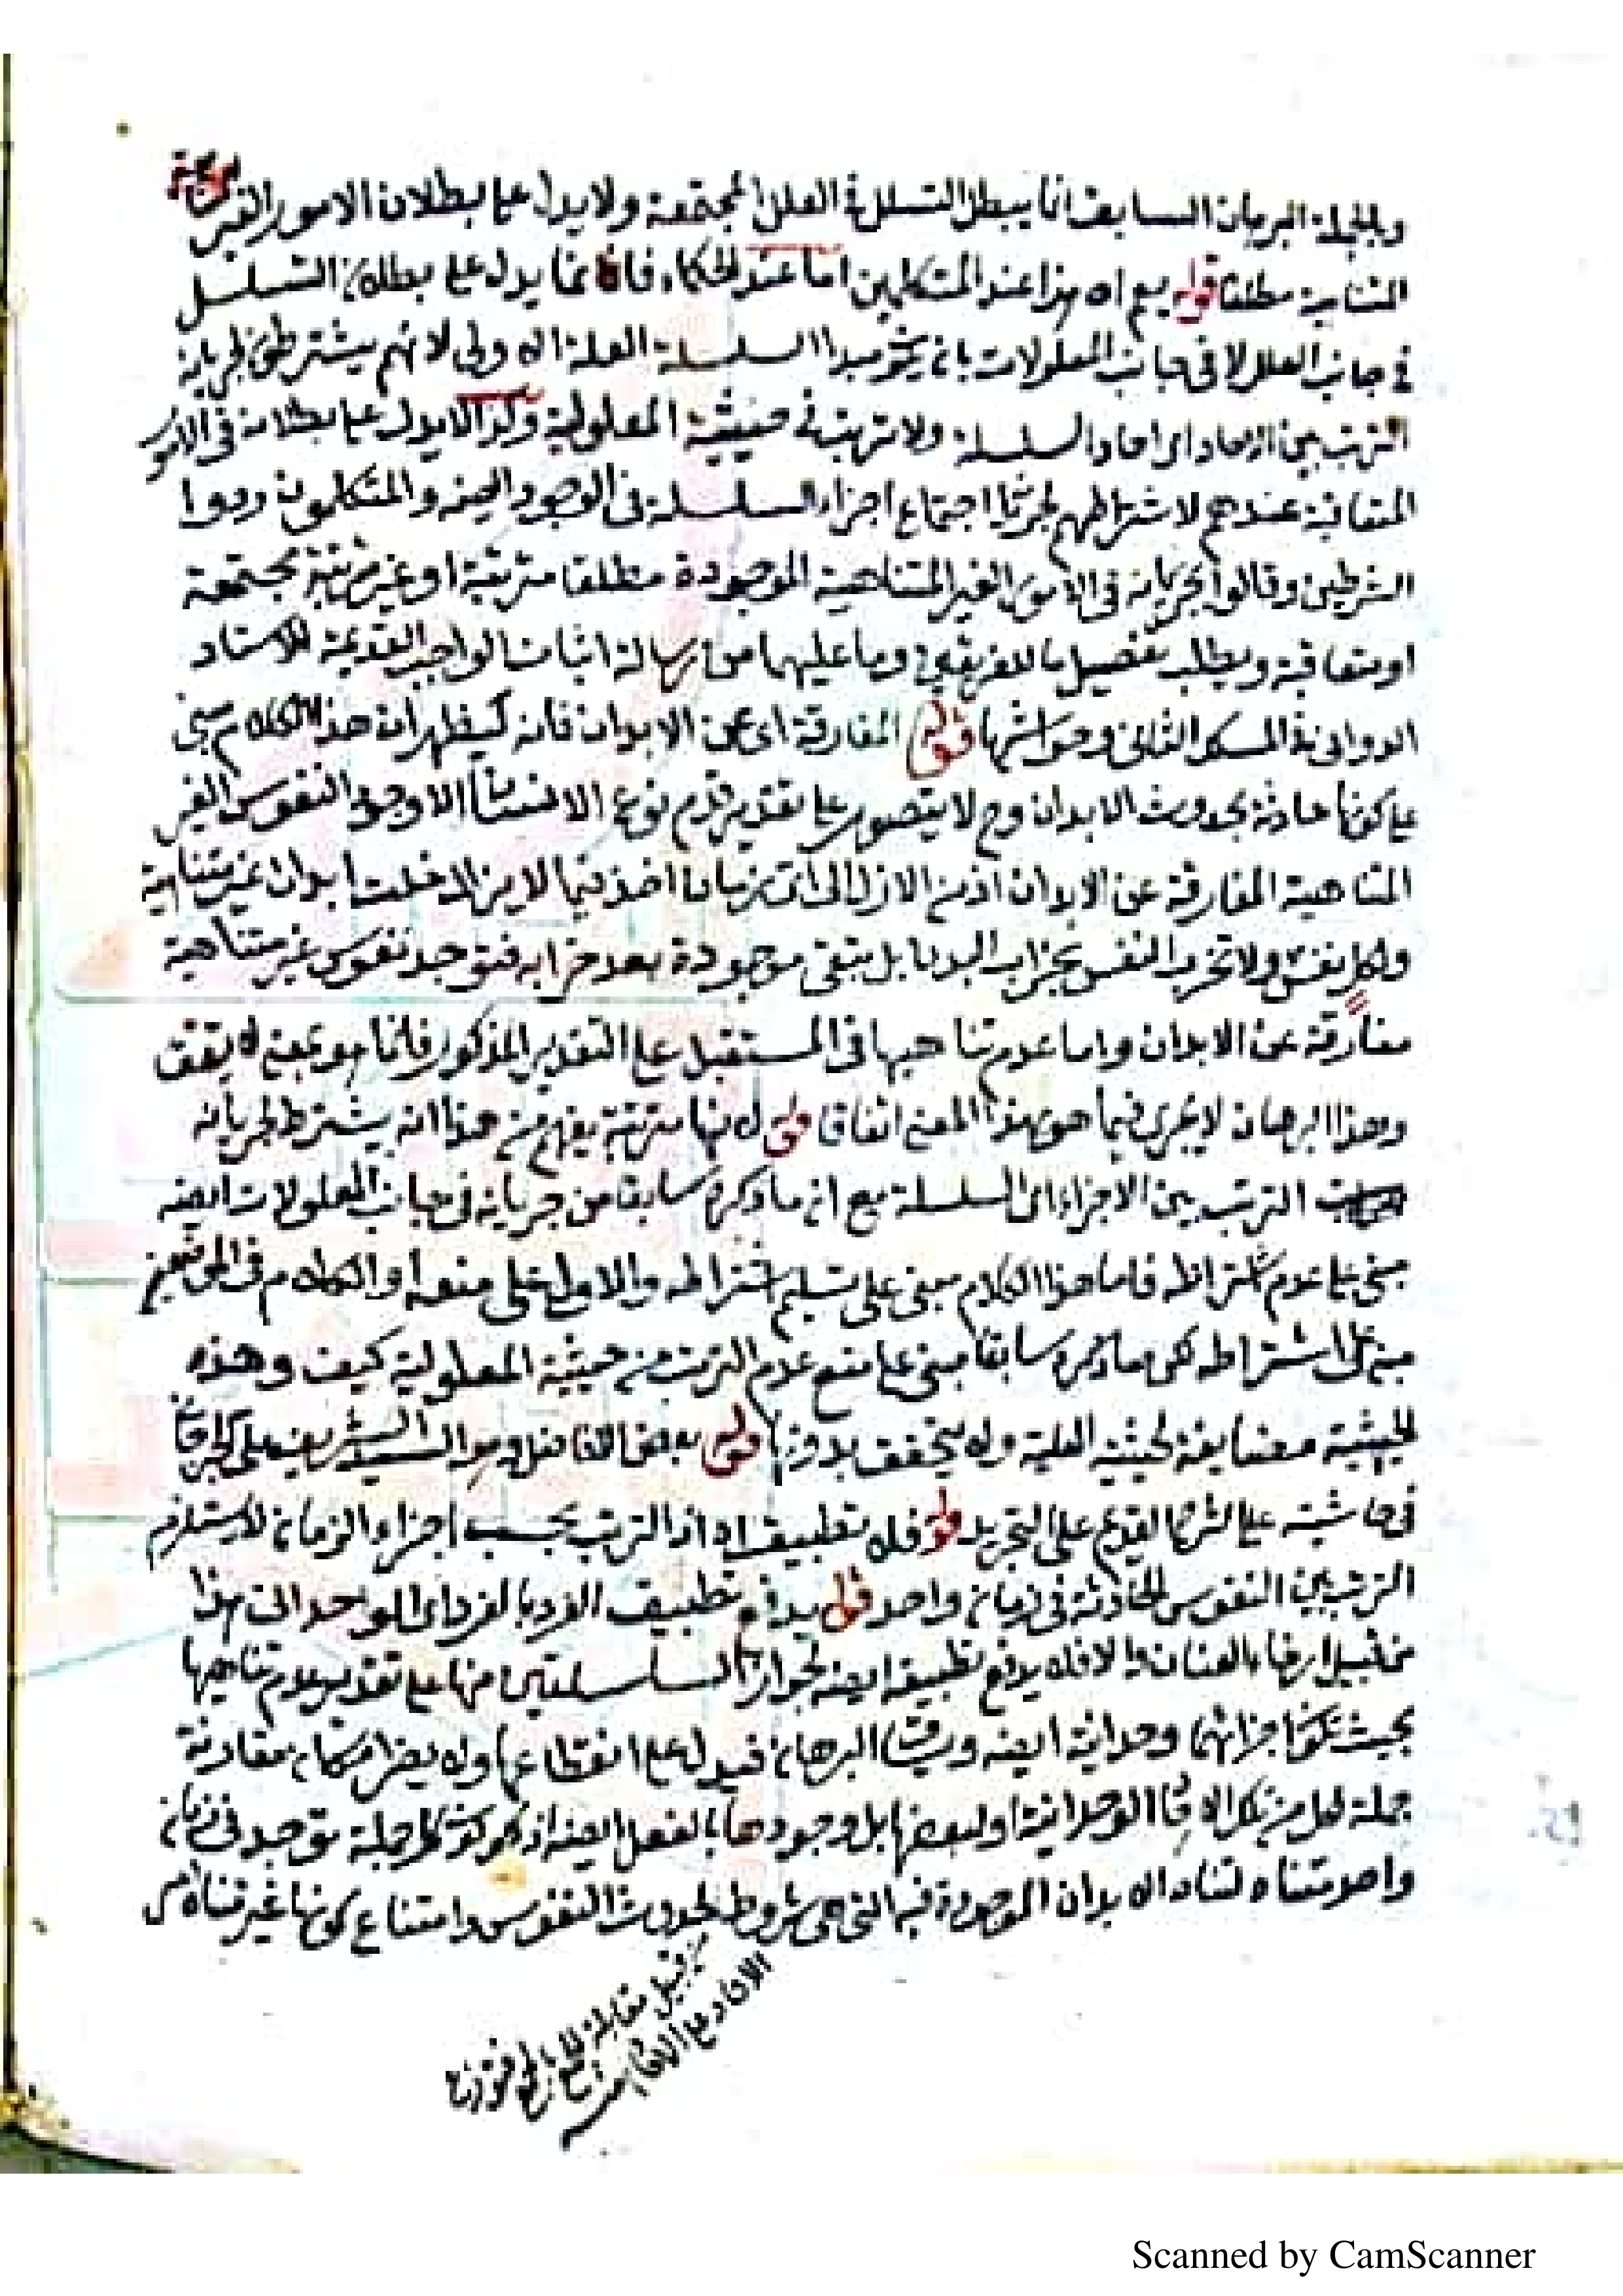 وبالجملة البرهان السابق انما يبطل التسلسل في العلل المجتمعة ولا يدل على بطلان الامور الغير
المتناهية مطلقا قوله يعم اه هذا عند المتكلمين اما عند الحكماء فانما يدل على بطلان التسلسل
في جانب العلل لا في جانب المعلولات بان يكون مبدأ السلسلة العلة الاولى لانهم يشترطون لجريانه
الترتب بين الاحاد اى احاد السلسلة ولا ترتب في حيثية المعلولية وكذا لا يدل على بطلانه في الامور
المتعاقبة عندهم لاشتراطهم لجريانها اجتماع اجزاء السلسلة في الوجود ايضه والمتكلمون ردوا
الشرطين وقالوا بجريانه في الامور الغير المتناهية الموجودة مطلقا مترتبة او غير مترتبة مجتمعة
او متعاقبة ويطلب تفصيل ما للفريقين وما عليهما من رسالة اثبات الواجب القديمة للاستاد
الدوانى في المسلك الثانى وحواشيها قوله المفارقة اى عن الابدان فانه كيظهر ان هذا الكلام مبنى
على كونها حادثة بحدوث الابدان وح لا يتصور على تقدير قدم نوع الانسان الا وجود النفوس الغير
المتناهية المفارقة عن الابدان اذ من الازل الى اى زمان اخذ فيما لا يزال دخلت ابدان غير متناهية
ولكل نفس ولا تخرب النفس بخراب البدن بل تبقى موجودة بعد خرابه فتوجد نفوس غير متناهية
مفارقة عن الابدان واما عدم تناهيها في المستقبل على التقدير المذكور فانما هو بمعنى لا يقف
وهذا البرهان لا يجرى فيما هو بهذا المعنى اتفاقا قوله لانها مترتبة يفهم من هذا انه يشترط لجريانه
الترتب بين الاجزاء اى السلسلة مع ان ما ذكره سابقا من جريانه في جانب المعلولات ايضه
مبنى على عدم اشتراطه فاما هذا الكلام مبنى على تسليم اشتراطه والاول على منعه او الكلام في الموضعين
مبنى على اشتراطه لكن ما ذكره سابقا مبنى على منع عدم الترتب من حيثية المعلولية كيف وهذه
الحيثية مضايفة لحيثية العلية ولا يتحقق بدونها قوله بعض الافاضل وهو السيد الشريف على
في حاشيته على الشرح القديم على التجريد قوله فلا تطبيق اه اذ الترتب بحسب اجزاء الزمان لا يستلزم
الترتب بين النفوس الحادثة في زمان واحد قوله يدفع تطبيق الفرد بالفرد اى الواحد الخ هذا
من قبيل ارخاء العنان والا فلا يدفع تطبيقه ايضه لجواز السلسلتين منها على تقدير عدم تناهيها
بحيث تكون اجزائهما وحدانية ايضه البرهان فيدل على انقطاعها ولا يضر امكان مقارنة
جملة وجودها بالفعل ايضه اذ كل جملة توجد في زمان
واحد متناه لتناه الابدان الموجودة فيه التى هى شروط لحدوث النفوس وامتناع كونها غير متناه
من قبيل مقابلة الجمع بالجمع فتوزع
الاحاد على الاحاد منه
Scanned by CamScanner